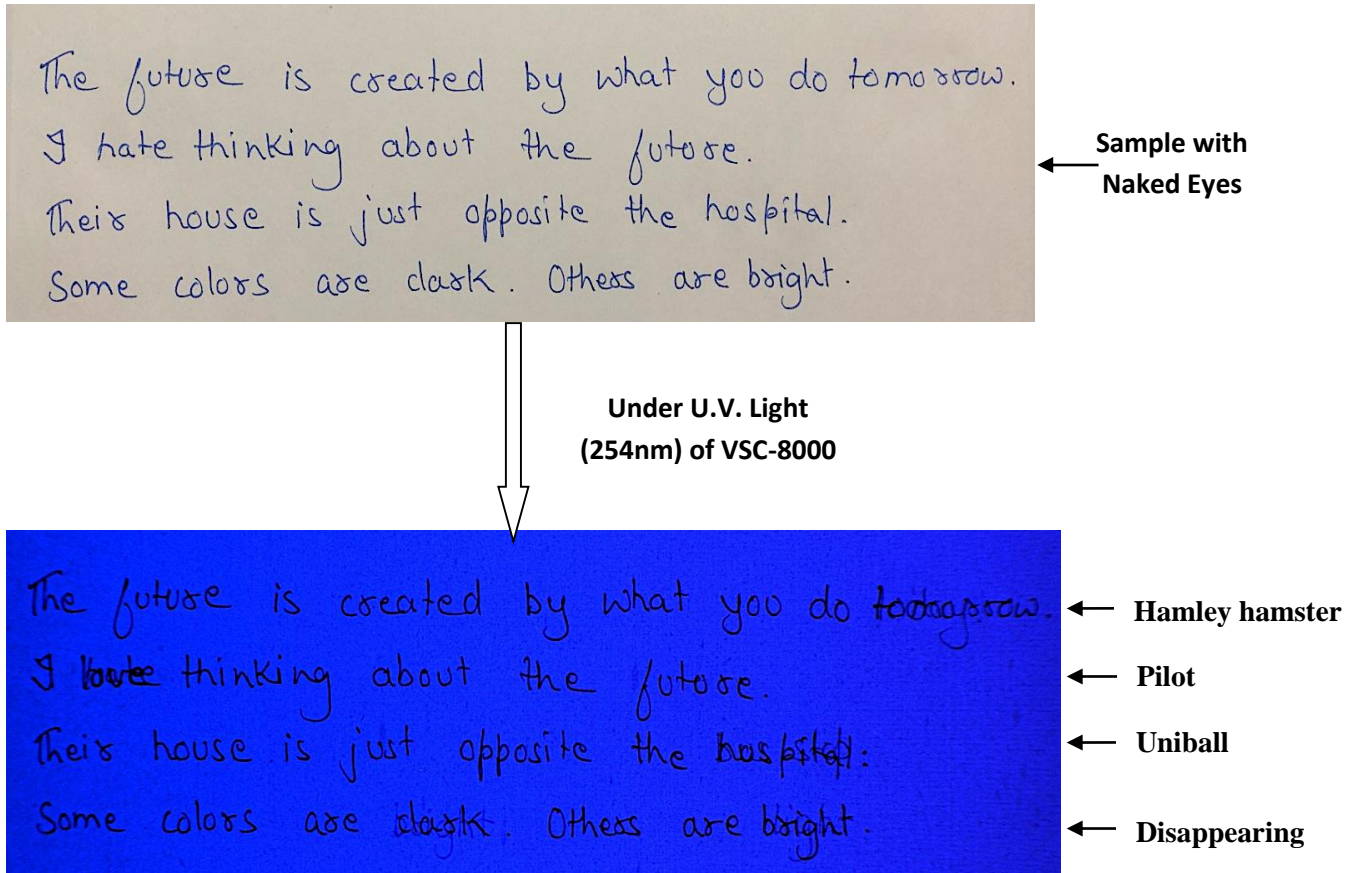 The future is created by what you do tomorrow.
I hate thinking about the future.
Their house is just opposite the hospital.
Some colors are dark. Others are bright.
Sample with
Naked Eyes
Under U.V. Light
(254nm) of VSC-8000
The future is created by what you do
I thinking about the future.
Their house is just opposite the
Some colors are Others are bright.
Hamley hamster
Pilot
Uniball
Disappearing